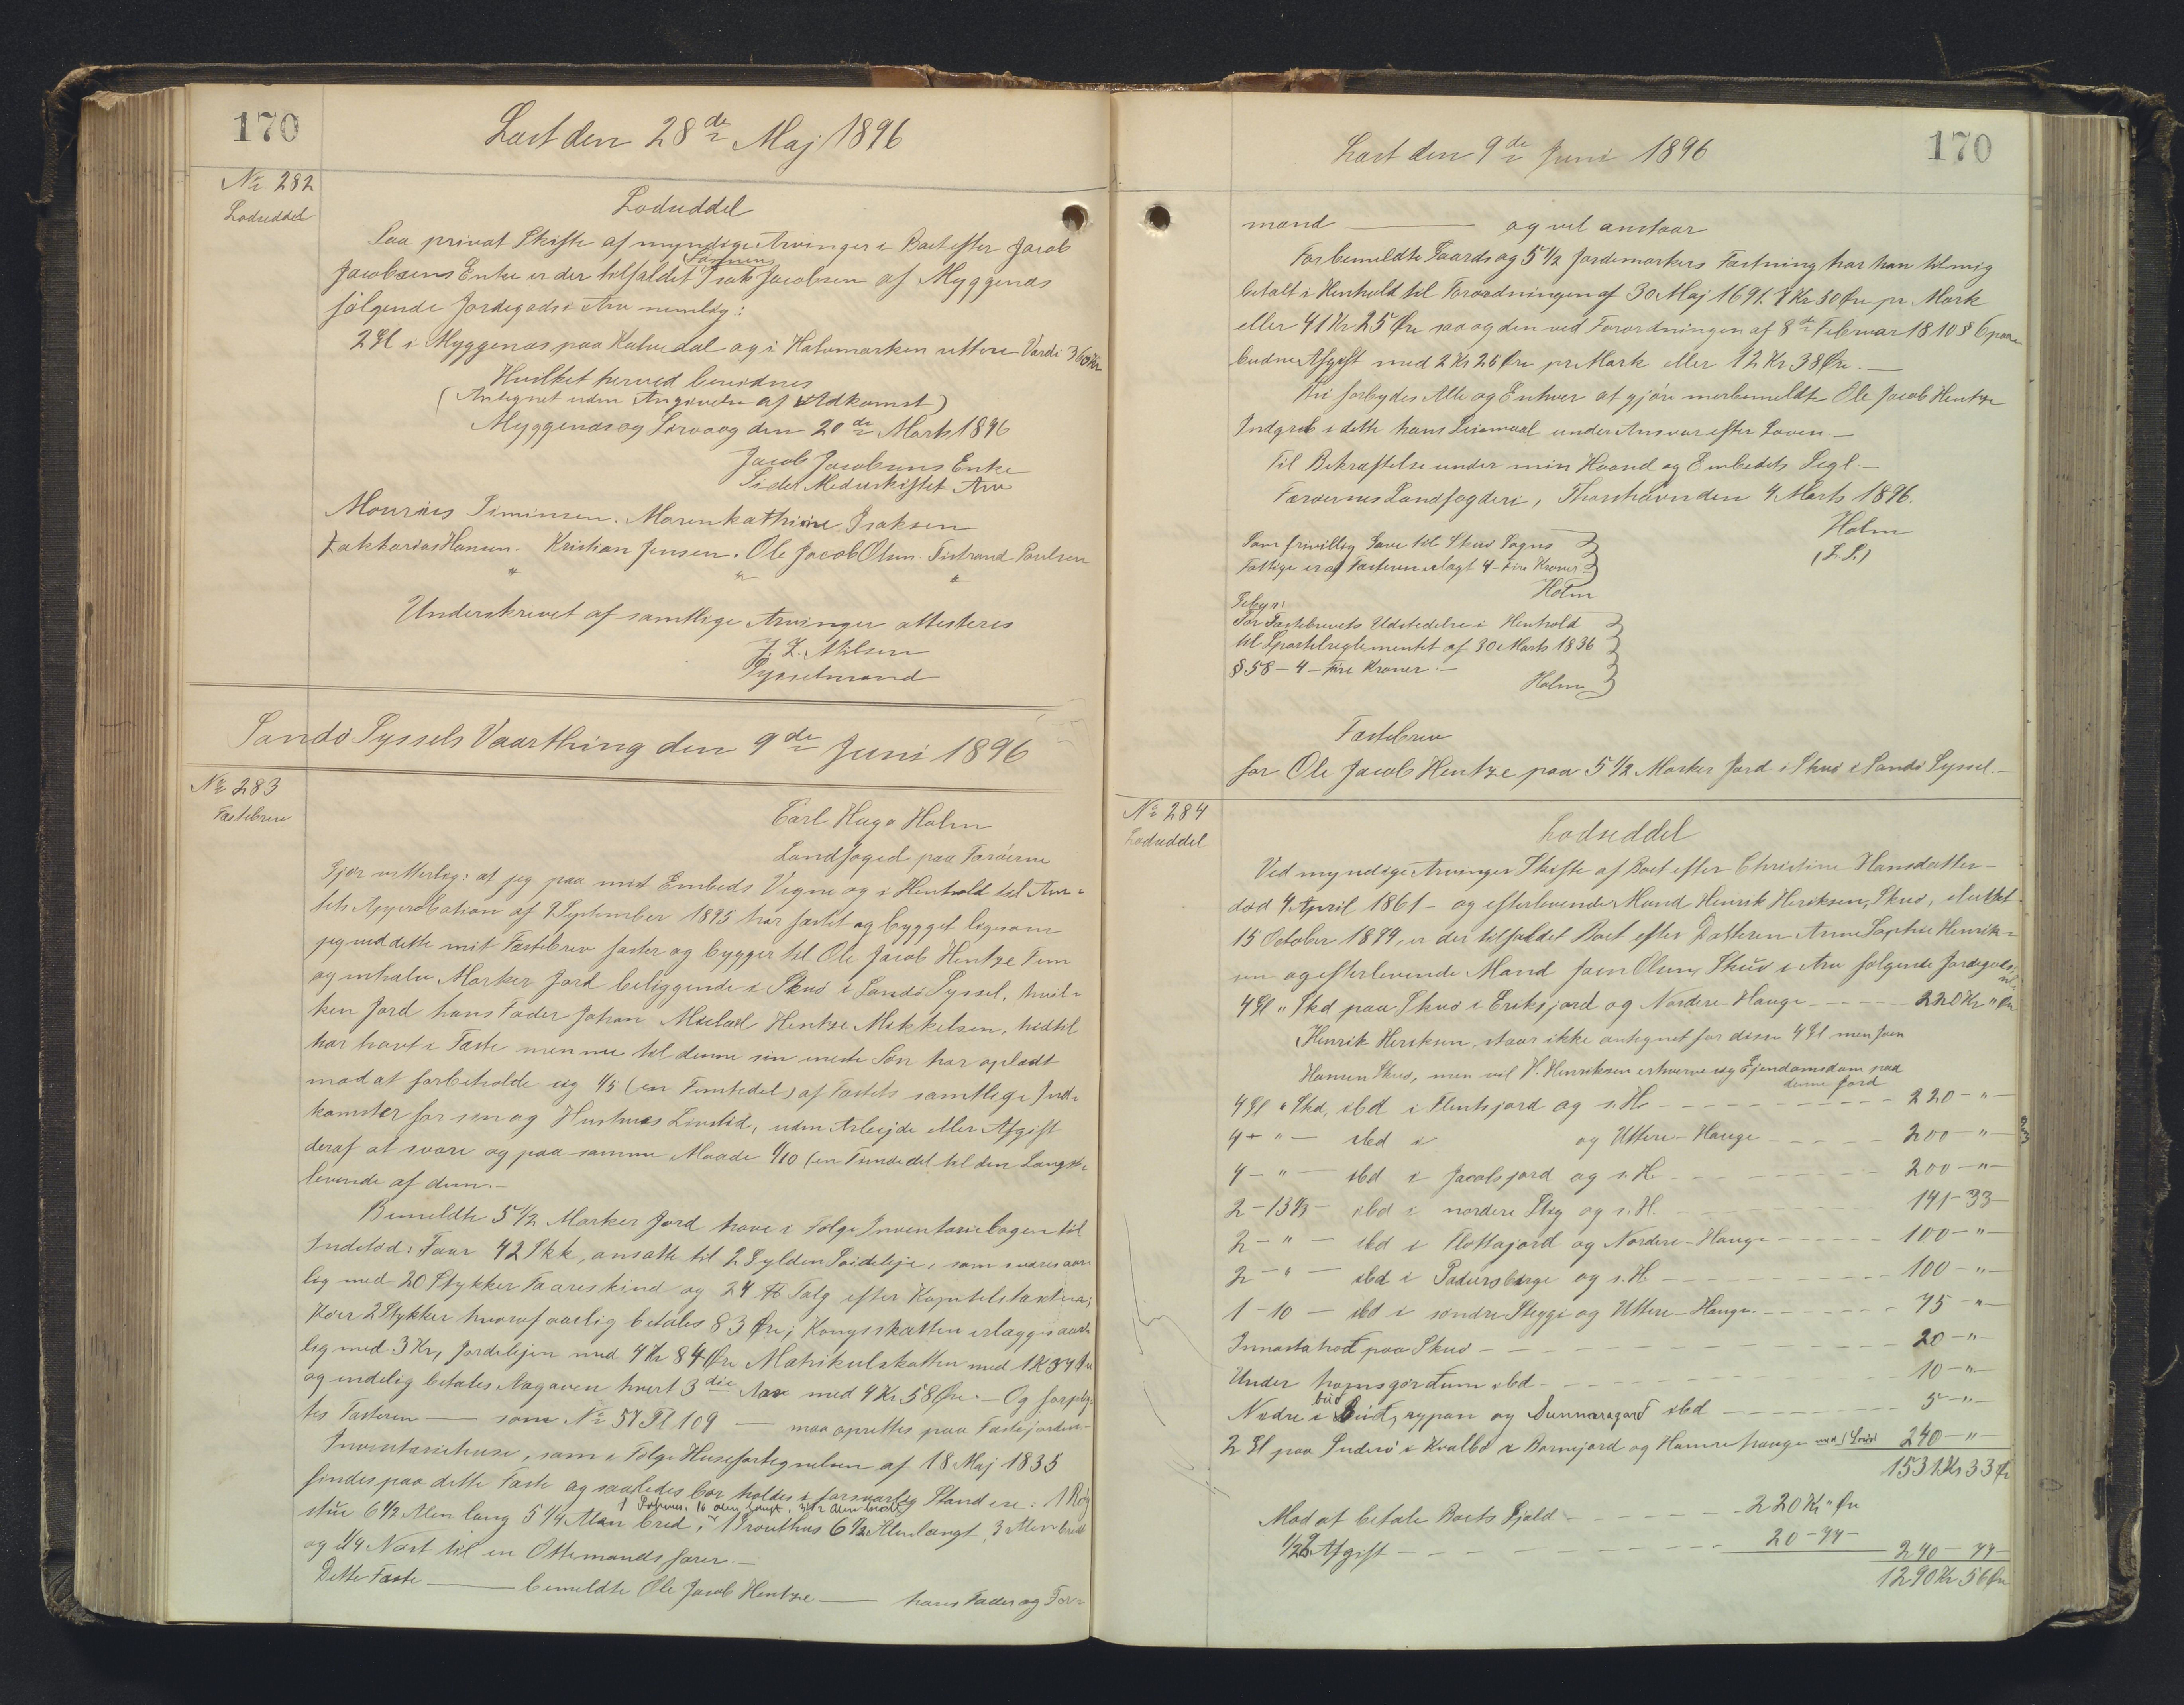 170
Læst den 28de Maj 1896
No 282
Lodseddel
Lodseddel
Paa privat Skifte af myndige Arvinger i Boet efter Jacob
Jacobsens Enke er der tilfaldet Sønnen Isak Jacobsen af Myggenæs
følgende Jordegods i Arv nemlig:
2 Gl i Myggenæs paa Kalvedal og i Halvmarken uttere Værdi 360 Kr
Hvilket herved bevidnes
(Antegnet uden Angivelse af Adkomst)
Myggenæs og Sørvaag den 20de Marts 1896
Jacob Jacobsens Enke
Sidder Meduskiftet Arv
Mourius Siminsen. Marenkathrine Isaksen
Zakharias Hansen. Kristian Jensen. Ole Jacob Olsen. Tistrand Poulsen
" " "
Underskrevet af samtlige Arvinger attesteres
J. Z. Nilsen
Sysselmand
Sandø Syssels Vaarthing den 9de Juni 1896
No 283
Fæstebrev
Carl Hugo Holm
Landfoged paa Færøerne
Gjør vitterlig: at jeg paa mit Embeds Vegne og i Henhold til Am=
tets Approbation af 9 September 1895 har fæstet og bygget ligesom
jeg ved dette mit Fæstebrev fæster og bygger til Ole Jacob Hentze Fem
og enhalv Marker Jord beliggende i Skuø i Sandø Syssel, hvil=
ken Jord hans Fader Johan Michael Hentze Mikkelsen, hidtil
har havt i Fæste men nu til denne sin eneste Søn har opladt
mod at forbeholde sig 1/5 (en Femtedel) af Fæstets samtlige Ind=
komster for sin og Hustrues Livstid, uden Arbejde eller Afgift
deraf at svare og paa samme Maade 1/10 (en Tiendedel til den Længst=
levende af dem.-
Bemeldte 5 1/2 Marker Jord have i Følge Inventariebogen til
Indstød: Faar 42 Stkk, ansatte til 2 Gylden Søideleje, som svares aar=
lig med 20 Stykker Faareskind og 24 ℔ Talg efter Kapitelstaxten;
Køer 2 Stykker hvoraf aarlig betales 83 Øre; Kongsskatten erlægges aar=
lig med 3 Kr, Jordelejen med 4 Kr 84 Øre Matrikulskatten med 1 K 34 Øre
og endelig betales Aagaven hvert 3die Aar med 4 Kr 58 Øre. - Og forplig=
tes Fæsteren — som No 57 Pl 109 — maa oprettes paa Fæstejorden
Inventariehuse, som i Følge Husefortegnelsen af 18 Maj 1835
findes paa dette Fæste og saaledes bør holdes i forsvarlig Stand ere: 1 Røg
stue 6 1/2 Alen lang 5 1/4 Alen bred, 1 Grouthus 6 1/2 Alen langt, 3 Alen bredt
og 1/4 Nøst til en Ottemandsfarer. -
Dette Fæste — bemeldte Ole Jacob Hentze — hans Fader og For=
Læst den 9de Juni 1896
170
mand — og vel anstaar
For bemeldte Gaards og 5 1/2 Jordemarkers Fæstning har han til mig
betalt i Henhold til Forordningen af 30 Maj 1691. 7 Kr 50 Øre pr. Mark
eller 41 Kr 25 Øre saa og den ved Forordningen af 8de Februar 1810 § 6 paa=
budne Afgift med 2 Kr 25 Øre pr Mark eller 12 Kr 38 Øre. -
Thi forbydes Alle og Enhver at gjøre merbemeldte Ole Jacob Hentze
Indgreb i dette hans Leiemaal under Ansvar efter Loven. -
Til Bekræftelse under min Haand og Embedets Segl -
Færøernes Landfogderi, Thorshavn den 4 Marts 1896.
Holm
(L. S.)
Som frivillig Gave til Skuø Sogns
Fattige er af Fæsteren erlagt 4 - Fire Kroner.
Holm
Gebyr:
For Fæstebrevets Udstedelse i Henhold
til Sportelreglementet af 30 Marts 1836
§ 58 - 4 - Fire Kroner. -
Holm
Fæstebrev
for Ole Jacob Hentze paa 5 1/2 Marker Jord i Skuø i Sandø Syssel. -
No 284
Lodseddel
Lodseddel
Ved myndige Arvinger Skifte af Boet efter Christine Hansdatter -
død 4 April 1861 - og efterlevende Mand Henrik Heriksen, Skuø, sluttet
15 October 1894, er der tilfaldet Boet efter Datteren Anne Sophie Henrik=
sen og efterlevende Mand Joen Olsen, Skuø i Arv følgende Jordegods:
4 Gl " Skd paa Skuø i Eriksjord og Nordere-Hauge - - - 220 Kr " Øre
Henrik Heriksen, staar ikke antegnet for disse 4 Gl men Joen
Hansen Skuø, men vil H. Henriksen erhverve sig Ejendomsdom paa
denne Jord
4 Gl " Skd, ibd i Klentsjord og s. H. - - - 220 - " -
4 - " - ibd i og Uttere-Hauge - - - 200 - " -
4 - " - ibd i Jacobsjord og s. H. - - - 200 - " -
2 - 13 1/3 - ibd i nordere Steg og s. H. - - - 141 - 33
2 - " - ibd i Flottajord og Nordere-Hauge - - - 100 - " -
2 - " - ibd i Padursbærge og s. H - - - 100 - " -
1 - 10 - ibd i søndre Steggi og Uttere-Hauge - - - 75 - " -
Innastatrød paa Skuø - - - 20 - " -
Under homsgørdum ibd - - - 10 - " -
Nedre i búð, rypan og Sunnaragard ibd - - - 5 - " -
2 Gl paa Suderø i Kvalbø i Bornejord og Hamrehauge - - - 240 - " -
1531 Kr 33 Øre
Mod at betale Boets Gjæld - - - 220 Kr " Øre
1/2 % Afgift - - - 20 - 77 -
240 - 77 -
1290 Kr 56 Øre